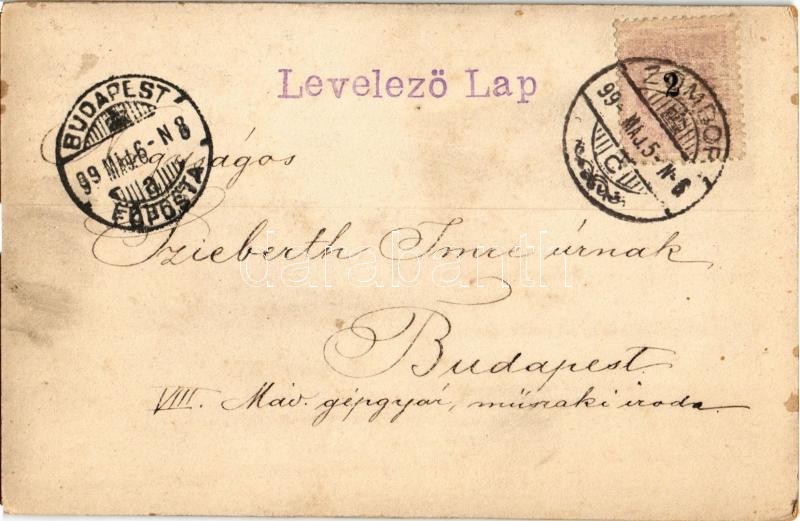 Levelező Lap
2
ZOMBOR
99 MÁJ. 5 - N 6
C
BUDAPEST
99 MÁJ. 6 - N 8
a
FŐPOSTA
Nagyságos
Szieberth Imre úrnak
Budapest
VIII. Máv. gépgyár, műszaki iroda.
darabanth